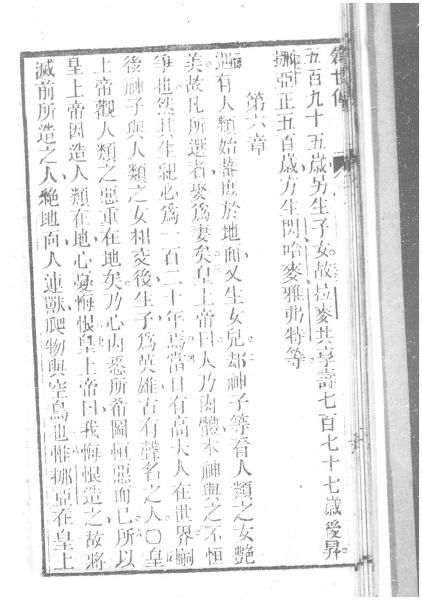 創世傳
五百九十五歲另生子女。故拉麥共享壽七百七十七歲後昇
挪亞正五百歲方生閃哈麥雅弗特等
第六章
遇有人類始蕃庶於地面又生女兒却神子等看人類之女艷
美故凡所選者娶爲妻矣皇上帝曰人乃肉體本神與之不恒
爭也然其生紀必爲一百二十年焉當日有高大人在世界嗣
後神子與人類之女相交後生子爲英雄古有聲名之人〇皇
上帝觀人類之惡重在地矣乃心內悉所希圖恒惡而已所以
皇上帝因造人類在地心憂悔恨皇上帝曰我悔恨造之故將
滅前所造之人絶地面人連獸爬物與空鳥也惟挪亞在皇上